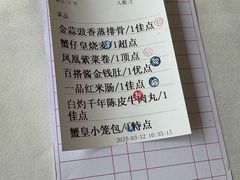 人数:2
菜品
金蒜豉香蒸排骨/1佳点
蟹仔皇烧麦/1超点
凤凰紫菜卷/1顶点
百搭酱金钱肚/1优点
一品红米肠/1佳点
白灼千年陈皮牛肉丸/1
佳点
蟹皇小笼包/1特点
2025-03-12 10:35:15